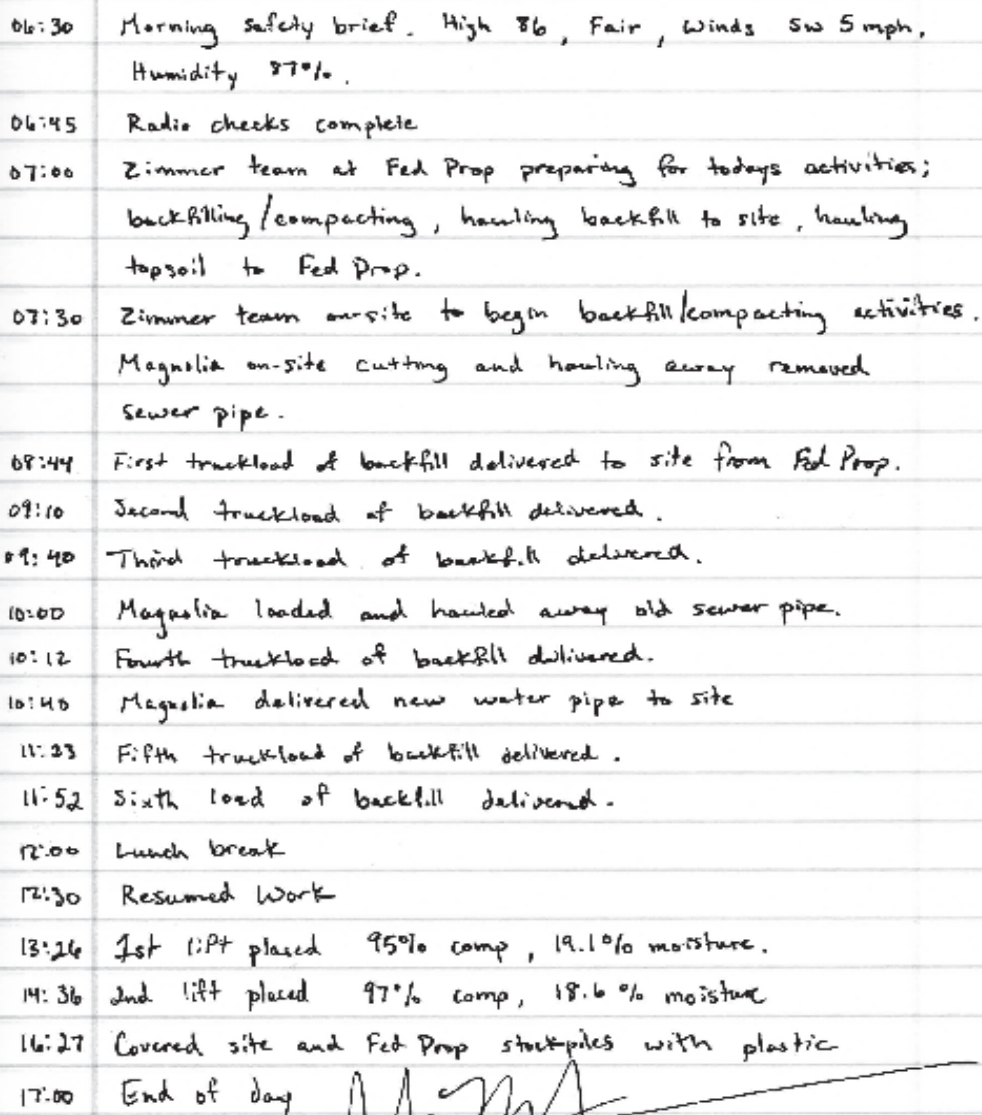 06:30 Morning safety brief. High 86, Fair, Winds SW 5 mph,
Humidity 87%.
06:45 Radio checks complete
07:00 Zimmer team at Fed Prop preparing for todays activities;
backfilling/compacting, hauling backfill to site, hauling
topsoil to Fed Prop.
07:30 Zimmer team on-site to begin backfill/compacting activities.
Magnolia on-site cutting and hauling away removed
sewer pipe.
08:44 First truckload of backfill delivered to site from Fed Prop.
09:10 Second truckload of backfill delivered.
09:40 Third truckload of backfill delivered.
10:00 Magnolia loaded and hauled away old sewer pipe.
10:12 Fourth truckload of backfill delivered.
10:40 Magnolia delivered new water pipe to site
11:23 Fifth truckload of backfill delivered.
11:52 Sixth load of backfill delivered.
12:00 Lunch break
12:30 Resumed Work
13:26 1st lift placed 95% comp, 19.1% moisture.
14:36 2nd lift placed 97% comp, 18.6% moisture
16:27 Covered site and Fed Prop stockpiles with plastic
17:00 End of day